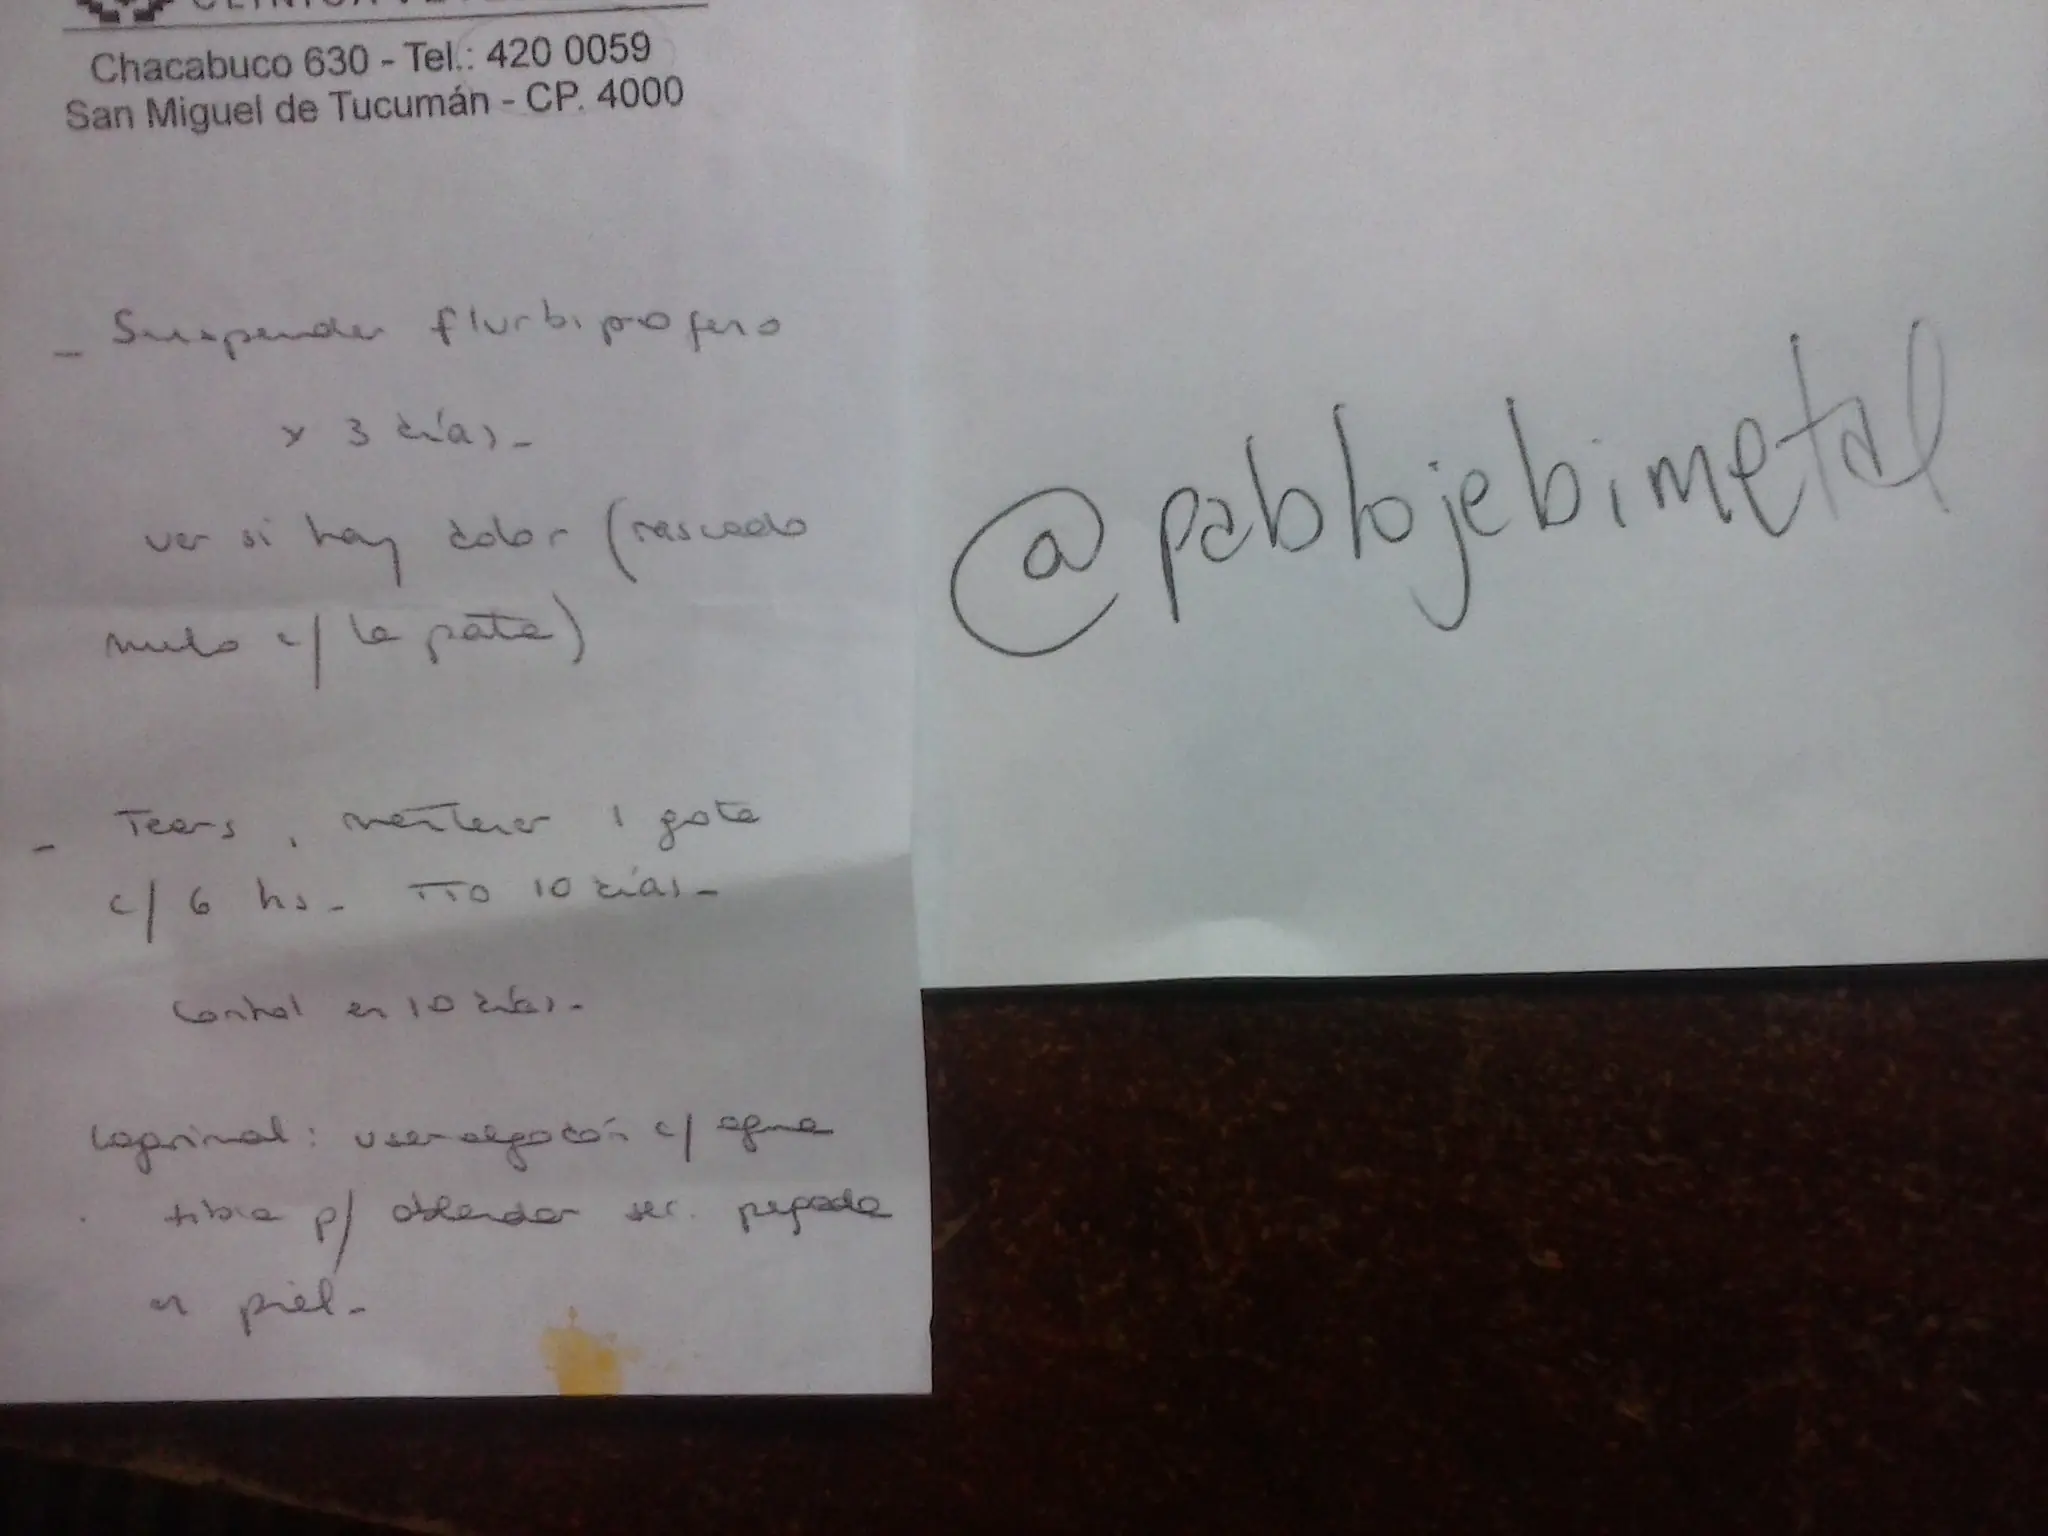 Chacabuco 630 - Tel.: 420 0059
San Miguel de Tucumán - CP. 4000
- Suspender flurbiprofeno
x 3 días -
ver si hay dolor (rascado
c/ la pata)
- Tears, mantener 1 gota
c/ 6 hs - TTO 10 días -
Control en 10 días -
Lagrimal: usar algodón c/ agua
tibia p/ ablandar sec. pegada
en piel -
@pablojebimetal